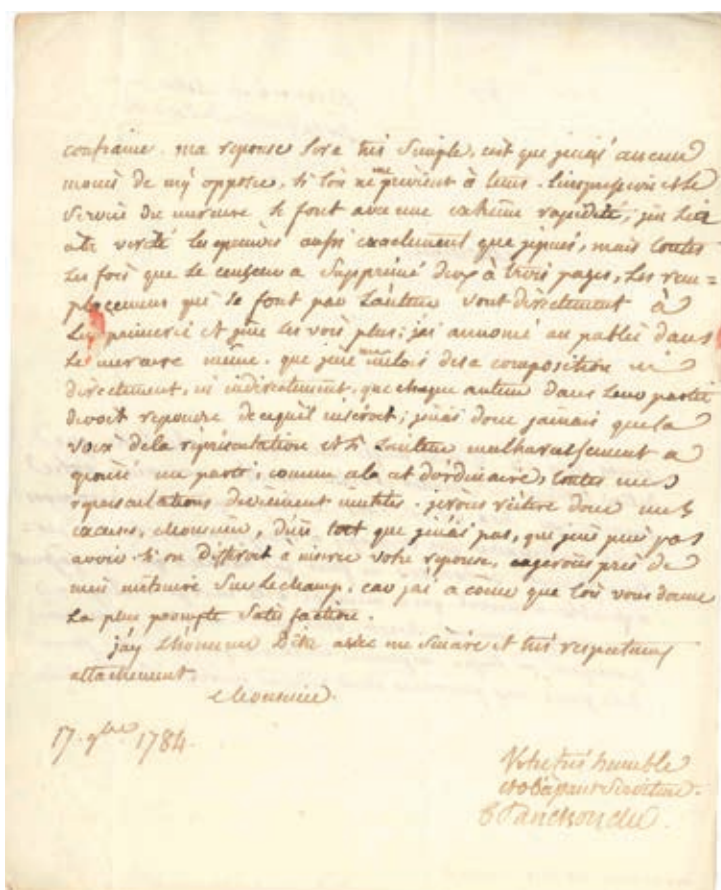 contraire. ma reponse sera tres simple, c'est que je n'ai aucun
moien de m'y opposer, si l'on ne me previent à tems. l'impression et le
service du mercure se font avec une extrême rapidité, j'en lis
verité les epreuves aussi exactement que je puis, mais toutes
les fois que le censeur a supprimé deux à trois pages, les rem=
placemens qui se font par l'auteur vont directement à
L'imprimerie et je ne les vois plus; j'ai annoncé au public dans
Le mercure même. que je ne me mélois de sa composition ni
directement, ni indirectement, que chaque auteur dans leur partie
devoit repondre de ce qu'il inséroit; je n'ai donc jamais que la
voix de la répresentation et si l'auteur malheureusement a
épousé un parti, comme cela est d'ordinaire, toutes mes
répresentations deviennent inutiles. je vous réitere donc mes
excuses, Monsieur, d'un tort que je n'ai pas, que je ne puis pas
avoir. si on différoit a inserer votre reponse, je vous prie de
m'en instruire sur le champ, car j'ai a coeur que l'on vous donne
La plus prompte satisfaction.
j'ay L'honneur D'être avec un sincère et très respectueux
attachement.
Monsieur.
17. 9bre 1784.
Votre très humble
et obéissant serviteur.
C Panckoucke